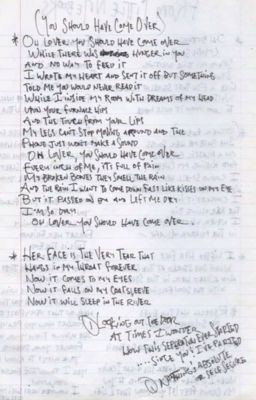 (YOU SHOULD HAVE COME OVER
* OH LOVER YOU SHOULD HAVE COME OVER
WHILE THERE WAS HUNGER IN YOU
AND NO WAY TO FEED IT
I WROTE MY HEART AND SENT IT OFF BUT SOMETHING
TOLD ME YOU WOULD NEVER READ IT
WHILE I INSIDE MY ROOM WITH DREAMS OF MY HEAD
UPON YOUR FURNACE LIPS
AND THE TOUCH FROM YOUR LIPS
MY LEGS CAN'T STOP MOVING AROUND AND THE
PHONE JUST WON'T MAKE A SOUND
OH LOVER, YOU SHOULD HAVE COME OVER
EVERY INCH OF ME, IT'S FULL OF PAIN
MY BROKEN BONES THEY SMELL THE RAIN
AND THE RAIN I WANT TO COME DOWN FAST LIKE KISSES ON MY EYE
BUT IT PASSED ON AND LEFT ME DRY
I'M SO DRY
OH LOVER, YOU SHOULD HAVE COME OVER...
* HER FACE IS THE VERY TEAR THAT
HANGS IN MY THROAT FOREVER
NOW IT COMES TO MY EYES
NOW IT FALLS ON MY COATSLEEVE
NOW IT WILL SLEEP IN THE RIVER
LOOKING OUT THE DOOR
AT TIMES I WONDER
HOW THIS SEPARATION EVER STARTED
....SINCE YOU & I'VE PARTED
NOTHING'S ABSOLUTE